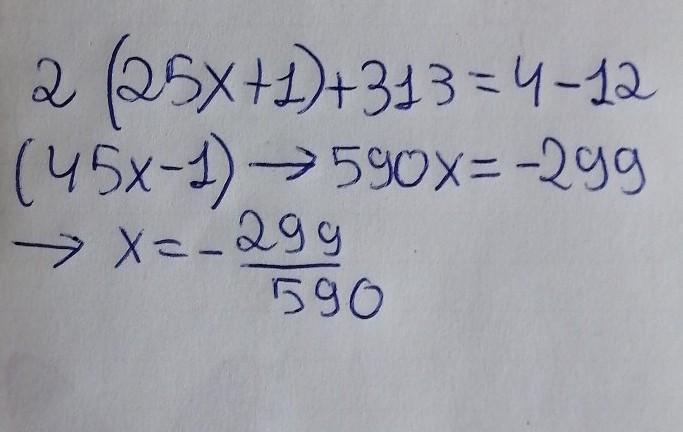 2 (25x+1)+313=4-12
(45x-1)→590x=-299
→ x=-299/590